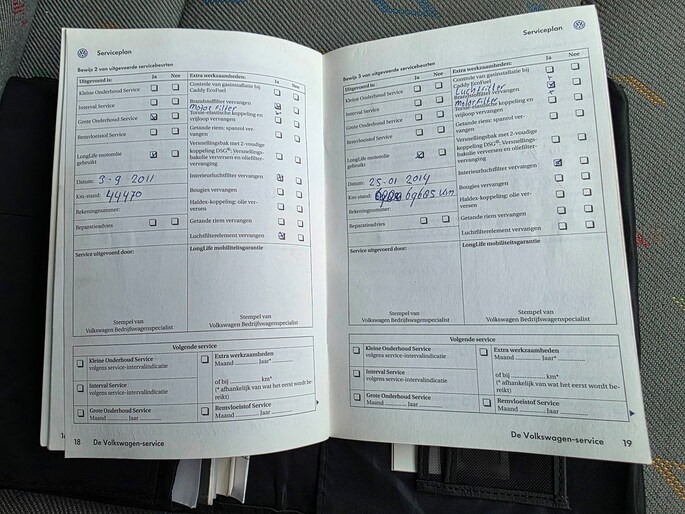 Serviceplan
Bewijs 2 van uitgevoerde servicebeurten
Uitgevoerd is: Ja Nee
Kleine Onderhoud Service
Interval Service
Grote Onderhoud Service
Remvloeistof Service
LongLife motorolie
gebruikt
Datum: 3-9 2011
Km-stand: 44470
Rekeningnummer:
Reparatieadvies
Service uitgevoerd door:
Stempel van
Volkswagen Bedrijfswagenspecialist
Extra werkzaamheden: Ja Nee
Controle van gasinstallatie bij
Caddy EcoFuel
Brandstoffilter vervangen
Motor Filter
Torsie-elastische koppeling en
vrijloop vervangen
Getande riem: spanrol ver-
vangen
Versnellingsbak met 2-voudige
koppeling DSG®: Versnellings-
bakolie verversen en oliefilter-
vervanging
Interieurluchtfilter vervangen
Bougies vervangen
Haldex-koppeling: olie ver-
versen
Getande riem vervangen
Luchtfilterelement vervangen
LongLife mobiliteitsgarantie
Stempel van
Volkswagen Bedrijfswagenspecialist
Volgende service
Kleine Onderhoud Service
volgens service-intervalindicatie
Interval Service
volgens service-intervalindicatie
Grote Onderhoud Service
Maand Jaar
Extra werkzaamheden
Maand Jaar*
of bij km*
(* afhankelijk van wat het eerst wordt be-
reikt)
Remvloeistof Service
Maand Jaar
18 De Volkswagen-service
Serviceplan
Bewijs 3 van uitgevoerde servicebeurten
Uitgevoerd is: Ja Nee
Kleine Onderhoud Service
Interval Service
Grote Onderhoud Service
Remvloeistof Service
LongLife motorolie
gebruikt
Datum: 25-01 2014
Km-stand: 69685 km
Rekeningnummer:
Reparatieadvies
Service uitgevoerd door:
Stempel van
Volkswagen Bedrijfswagenspecialist
Extra werkzaamheden: Ja Nee
Controle van gasinstallatie bij
Caddy EcoFuel
Luchtfilter
vervangen
Motorfilter
koppeling en
vrijloop vervangen
Getande riem: spanrol ver-
vangen
Versnellingsbak met 2-voudige
koppeling DSG®: Versnellings-
bakolie verversen en oliefilter-
vervanging
Interieurluchtfilter vervangen
Bougies vervangen
Haldex-koppeling: olie ver-
versen
Getande riem vervangen
Luchtfilterelement vervangen
LongLife mobiliteitsgarantie
Stempel van
Volkswagen Bedrijfswagenspecialist
Volgende service
Kleine Onderhoud Service
volgens service-intervalindicatie
Interval Service
volgens service-intervalindicatie
Grote Onderhoud Service
Maand Jaar
Extra werkzaamheden
Maand Jaar*
of bij km*
(* afhankelijk van wat het eerst wordt be-
reikt)
Remvloeistof Service
Maand Jaar
De Volkswagen-service 19